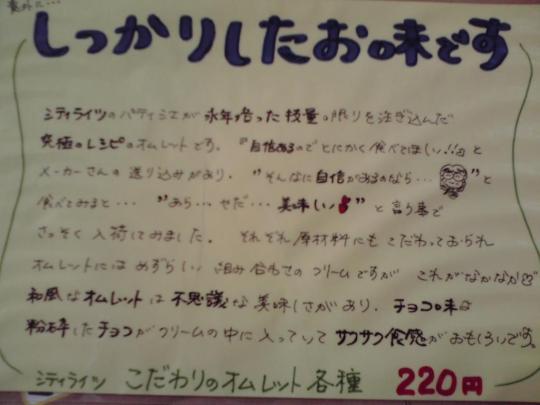 意外に…
しっかりしたお味です
シティライツのパティシエが永年培った技量の限りを注ぎ込んだ
究極のレシピのオムレットです。"自信あるのでとにかく食べてほしい!!"と
メーカーさんの送り込みがあり、"そんなに自信があるのなら… "と
食べてみると…"あら…やだ…美味しい"と言う事で
さっそく入荷してみました。それぞれ原材料にもこだわっておられ
オムレットにはめずらしい組み合わせのクリームですがこれがなかなか♡
和風なオムレットは不思議な美味しさがあり、チョコ味は
粉砕したチョコがクリームの中に入っていてサクサク食感がおもしろいです。
シティライツ こだわりのオムレット各種 220円